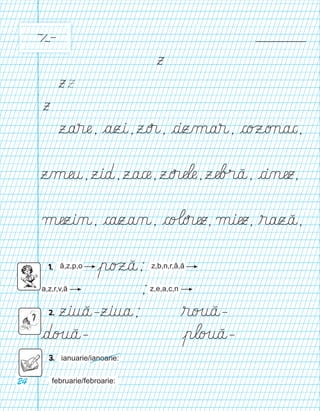 z
z z
z
zare, azi, zor, cizmar, cozonac,
zmeu, zid, zace, zorele, zebră, cinez,
mezin, cazan, colorez, miez, rază,
1. ă,z,p,o → poză; z,b,n,r,â,ă →
a,z,r,v,ă → ; z,e,a,c,n →
2. ziuă-ziua; rouă-
două- plouă-
3. ianuarie/ianoarie:
24 februarie/febroarie: